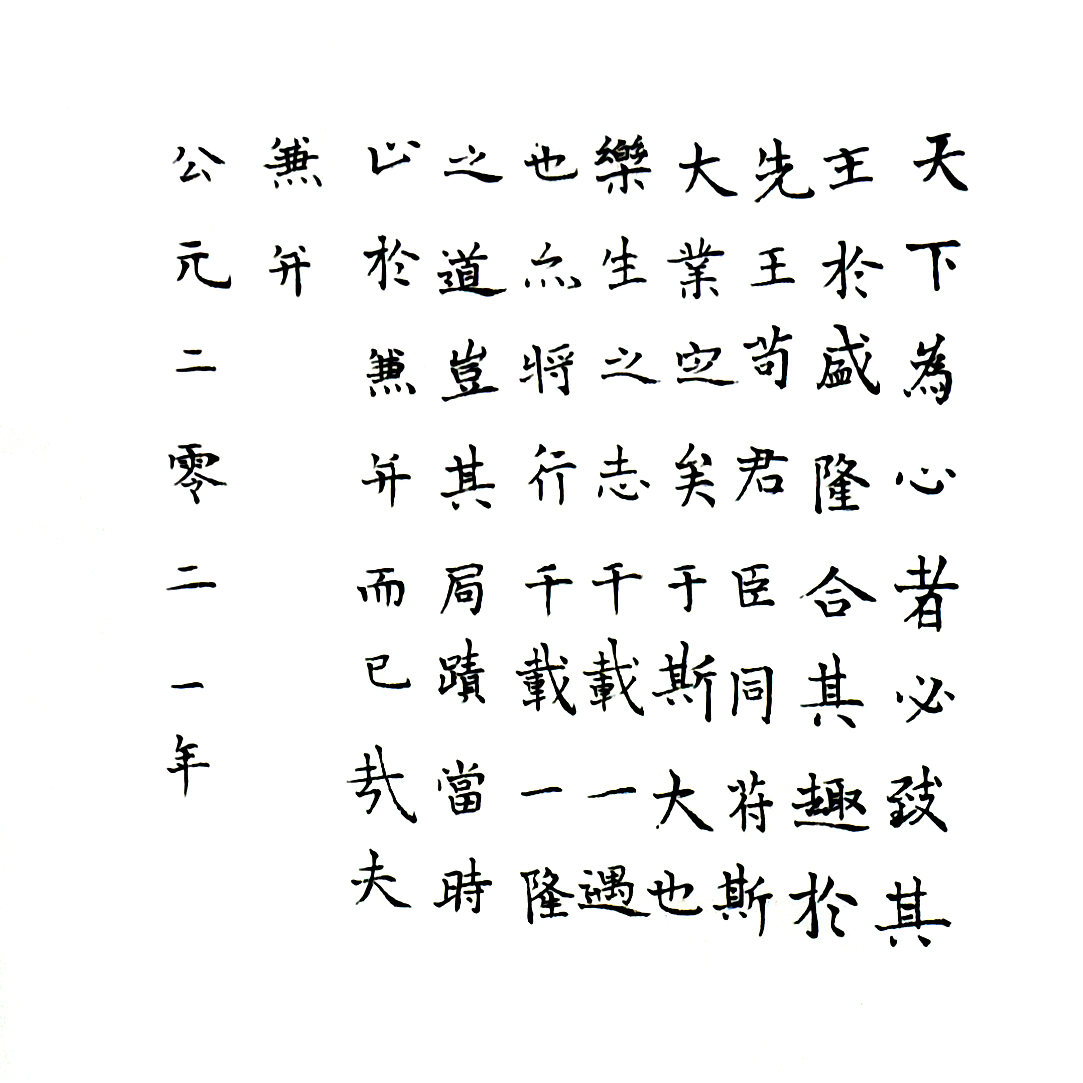 天下為心者必致其
主於盛隆合其趣於
先王苟君臣同符斯
大業定矣于斯大也
樂生之志千載一遇
也亦將行千載一隆
之道豈其局蹟當時
止於兼并而已哉夫
兼并
公元二零二一年